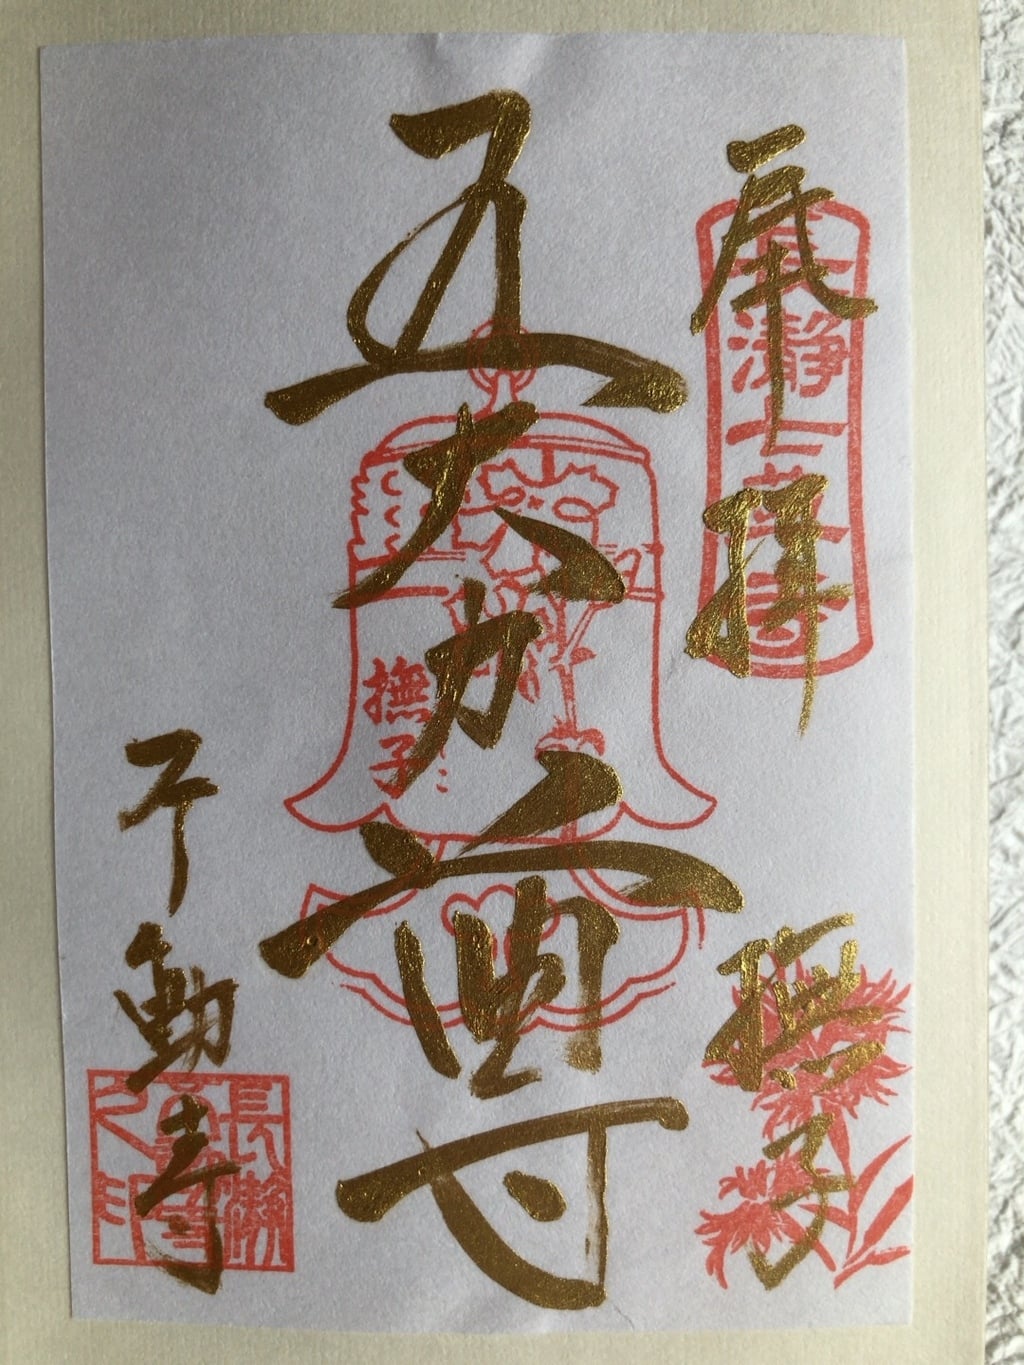 奉拝
撫子
長瀞七草寺
五大力尊
撫子
不動寺
長瀞